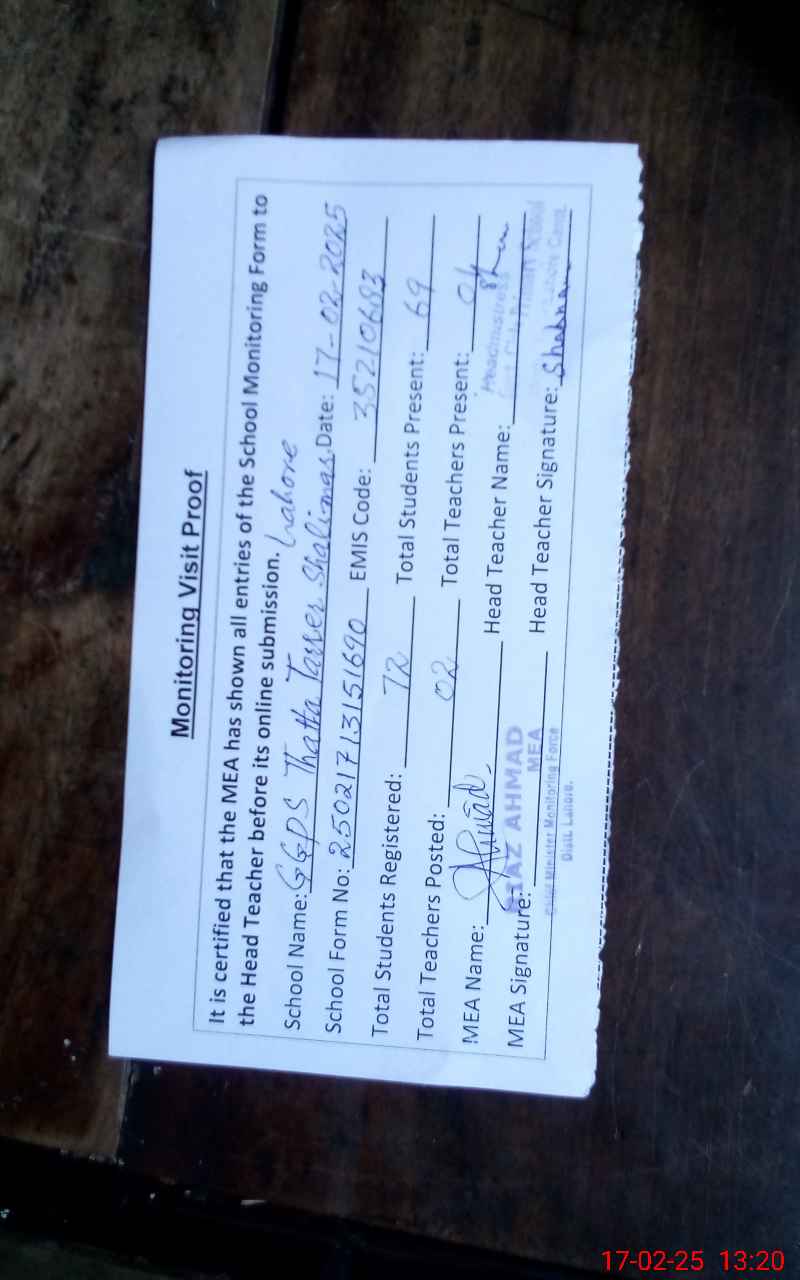 Monitoring Visit Proof
It is certified that the MEA has shown all entries of the School Monitoring Form to
the Head Teacher before its online submission.
School Name: GGPS Thatta Shalimar Lahore Date: 17-02-2025
School Form No: 250217131151690 EMIS Code: 35210683
Total Students Registered: 72 Total Students Present: 69
Total Teachers Posted: 02 Total Teachers Present:
MEA Name: Head Teacher Name:
MEA Signature: Head Teacher Signature:
AHMAD
MEA
Chief Minister Monitoring Force
Distt. Lahore.
Headmistress
17-02-25 13:20